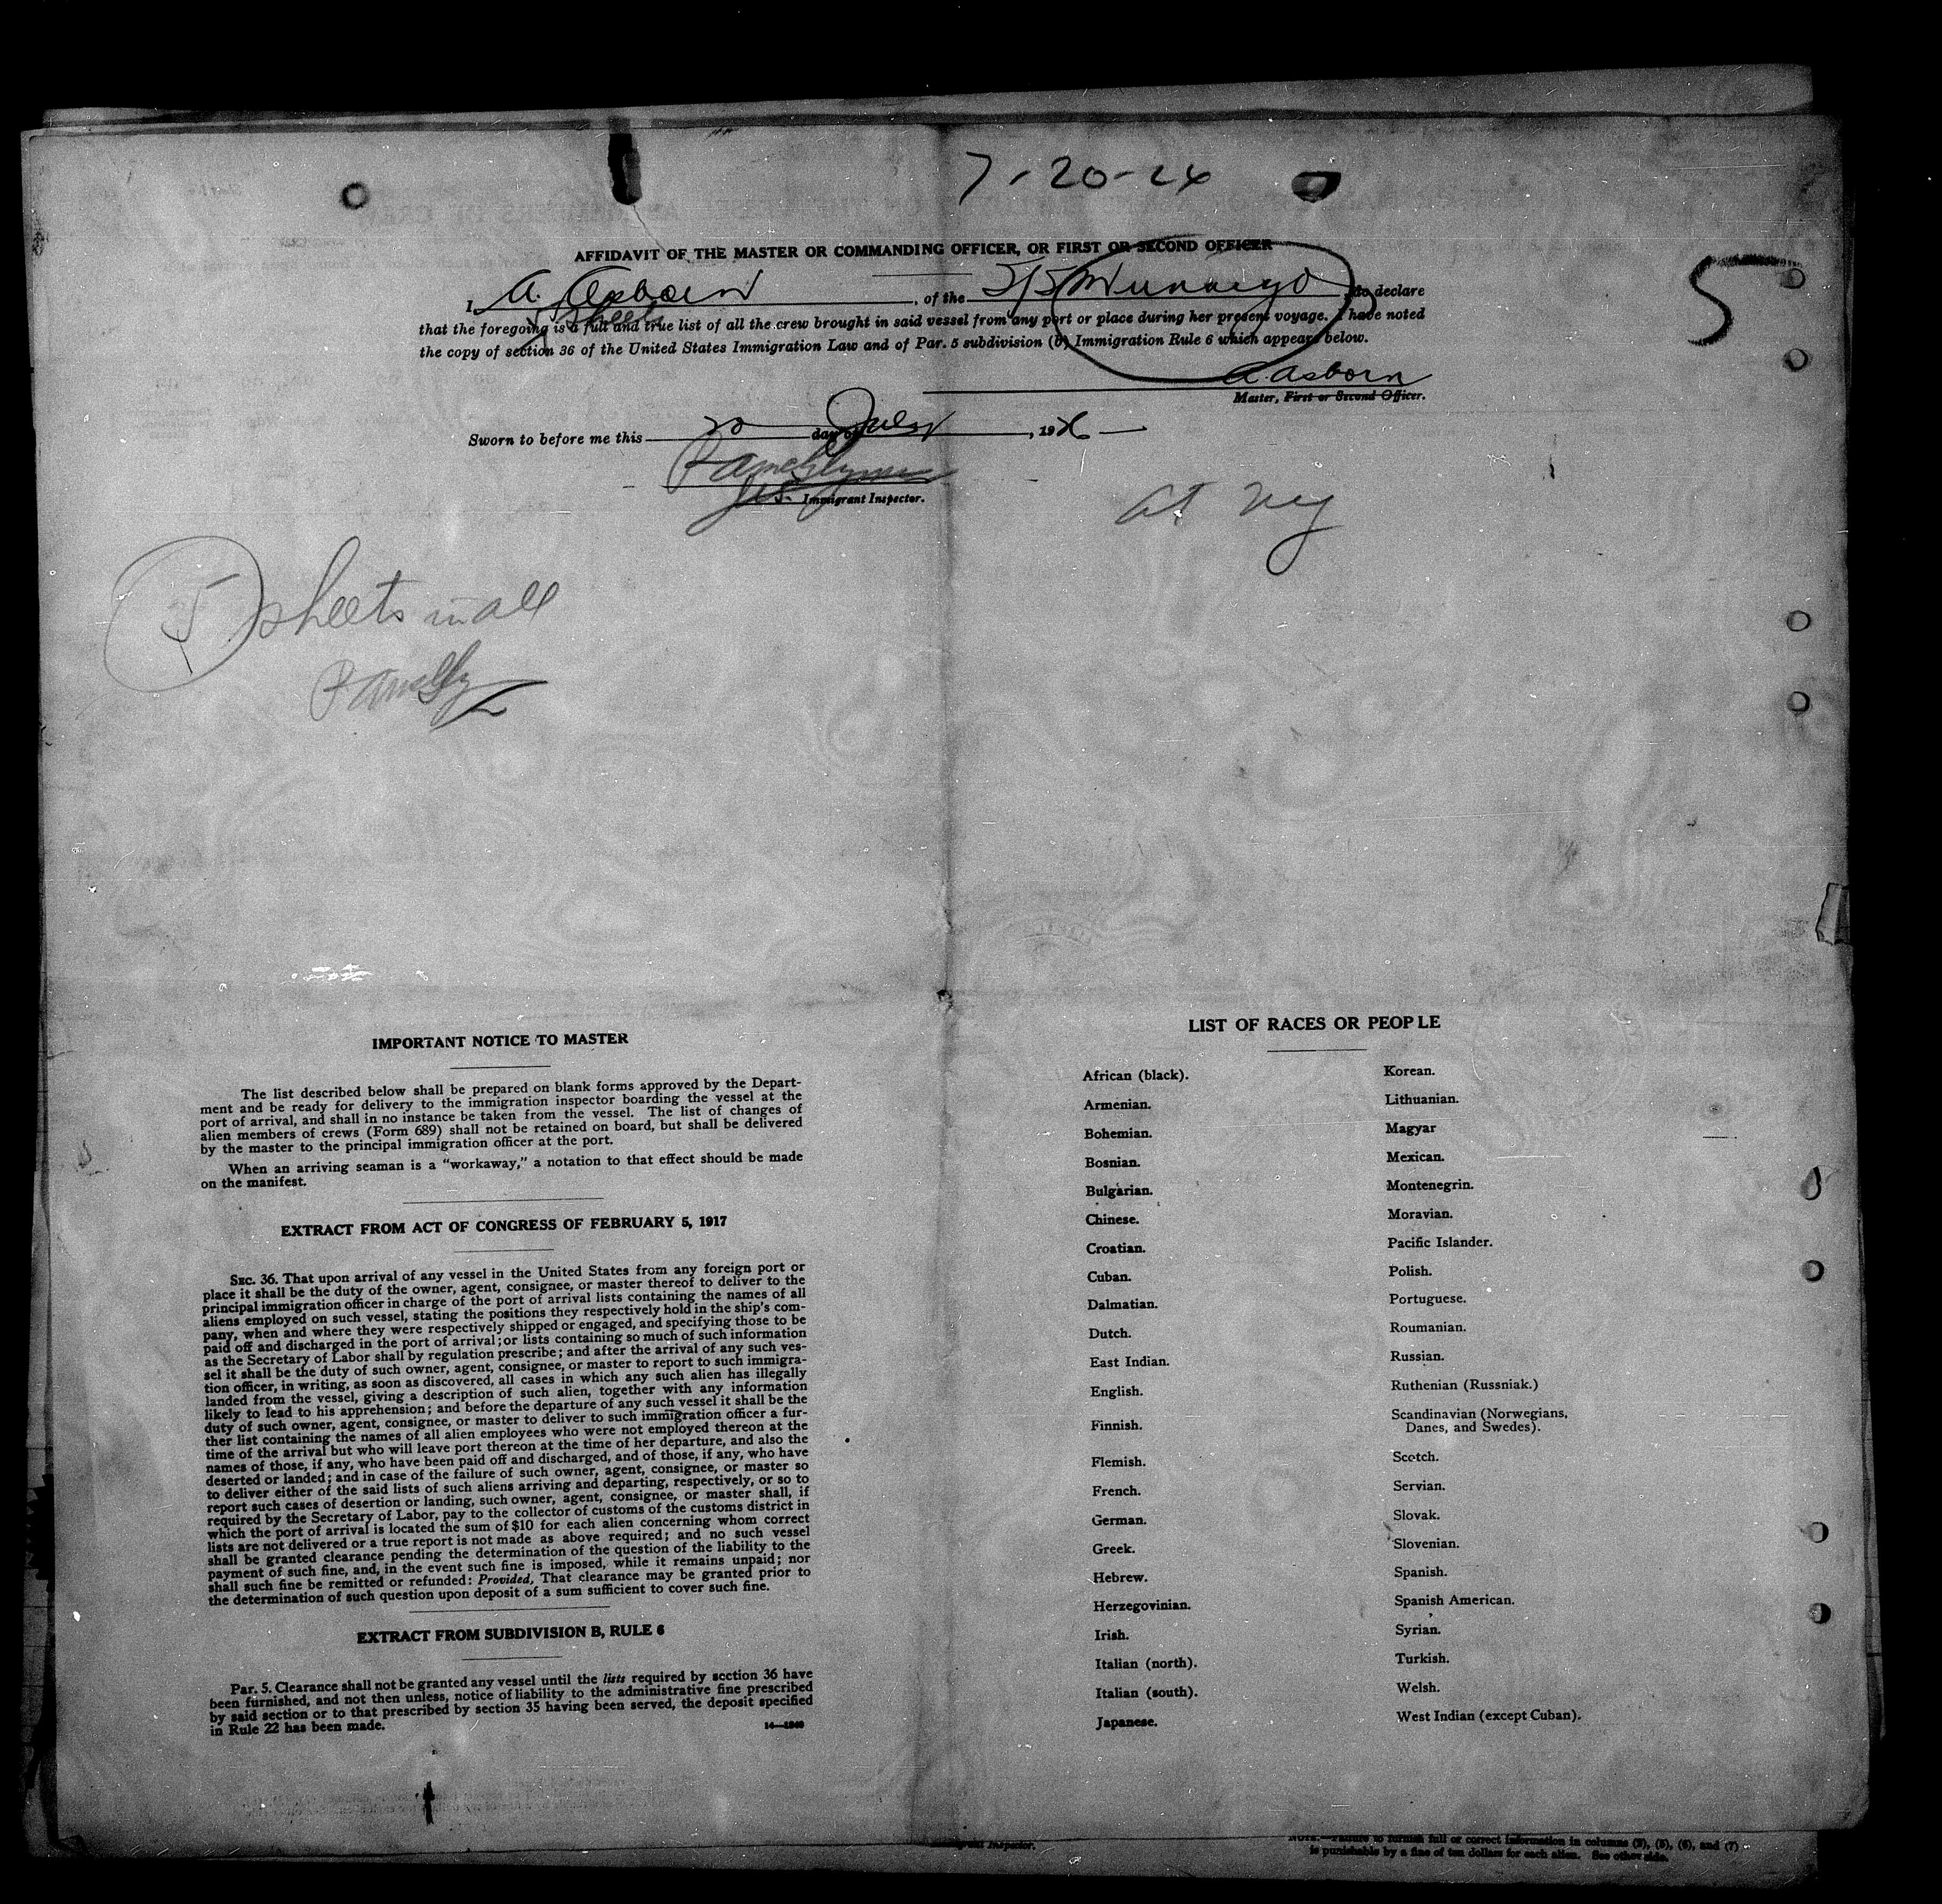 7-20-26
5
AFFIDAVIT OF THE MASTER OR COMMANDING OFFICER, OR FIRST OR SECOND OFFICER
I, A. Asborn, of the S/S Munargo, do declare
5 sheets
that the foregoing is a full and true list of all the crew brought in said vessel from any port or place during her present voyage. I have noted
the copy of section 36 of the United States Immigration Law and of Par. 5 subdivision (b) Immigration Rule 6 which appears below.
A. Asborn
Master, First or Second Officer.
Sworn to before me this 20 day of July, 1926
U.S. Immigrant Inspector.
at NY
5 sheets in all
IMPORTANT NOTICE TO MASTER
The list described below shall be prepared on blank forms approved by the Depart-
ment and be ready for delivery to the immigration inspector boarding the vessel at the
port of arrival, and shall in no instance be taken from the vessel. The list of changes of
alien members of crews (Form 689) shall not be retained on board, but shall be delivered
by the master to the principal immigration officer at the port.
When an arriving seaman is a "workaway," a notation to that effect should be made
on the manifest.
EXTRACT FROM ACT OF CONGRESS OF FEBRUARY 5, 1917
SEC. 36. That upon arrival of any vessel in the United States from any foreign port or
place it shall be the duty of the owner, agent, consignee, or master thereof to deliver to the
principal immigration officer in charge of the port of arrival lists containing the names of all
aliens employed on such vessel, stating the positions they respectively hold in the ship's com-
pany, when and where they were respectively shipped or engaged, and specifying those to be
paid off and discharged in the port of arrival; or lists containing so much of such information
as the Secretary of Labor shall by regulation prescribe; and after the arrival of any such ves-
sel it shall be the duty of such owner, agent, consignee, or master to report to such immigra-
tion officer, in writing, as soon as discovered, all cases in which any such alien has illegally
landed from the vessel, giving a description of such alien, together with any information
likely to lead to his apprehension; and before the departure of any such vessel it shall be the
duty of such owner, agent, consignee, or master to deliver to such immigration officer a fur-
ther list containing the names of all alien employees who were not employed thereon at the
time of the arrival but who will leave port thereon at the time of her departure, and also the
names of those, if any, who have been paid off and discharged, and of those, if any, who have
deserted or landed; and in case of the failure of such owner, agent, consignee, or master so
to deliver either of the said lists of such aliens arriving and departing, respectively, or so to
report such cases of desertion or landing, such owner, agent, consignee, or master shall, if
required by the Secretary of Labor, pay to the collector of customs of the customs district in
which the port of arrival is located the sum of $10 for each alien concerning whom correct
lists are not delivered or a true report is not made as above required; and no such vessel
shall be granted clearance pending the determination of the question of the liability to the
payment of such fine, and, in the event such fine is imposed, while it remains unpaid; nor
shall such fine be remitted or refunded: Provided, That clearance may be granted prior to
the determination of such question upon deposit of a sum sufficient to cover such fine.
EXTRACT FROM SUBDIVISION B, RULE 6
Par. 5. Clearance shall not be granted any vessel until the lists required by section 36 have
been furnished, and not then unless, notice of liability to the administrative fine prescribed
by said section or to that prescribed by section 35 having been served, the deposit specified
in Rule 22 has been made.
14—1940
LIST OF RACES OR PEOPLE
African (black).
Armenian.
Bohemian.
Bosnian.
Bulgarian.
Chinese.
Croatian.
Cuban.
Dalmatian.
Dutch.
East Indian.
English.
Finnish.
Flemish.
French.
German.
Greek.
Hebrew.
Herzegovinian.
Irish.
Italian (north).
Italian (south).
Japanese.
Korean.
Lithuanian.
Magyar
Mexican.
Montenegrin.
Moravian.
Pacific Islander.
Polish.
Portuguese.
Roumanian.
Russian.
Ruthenian (Russniak.)
Scandinavian (Norwegians,
Danes, and Swedes).
Scotch.
Servian.
Slovak.
Slovenian.
Spanish.
Spanish American.
Syrian.
Turkish.
Welsh.
West Indian (except Cuban).
Immigrant Inspector.
NOTE.—Failure to furnish full or correct information in columns (3), (5), (6), and (7)
is punishable by a fine of ten dollars for each alien. See other side.